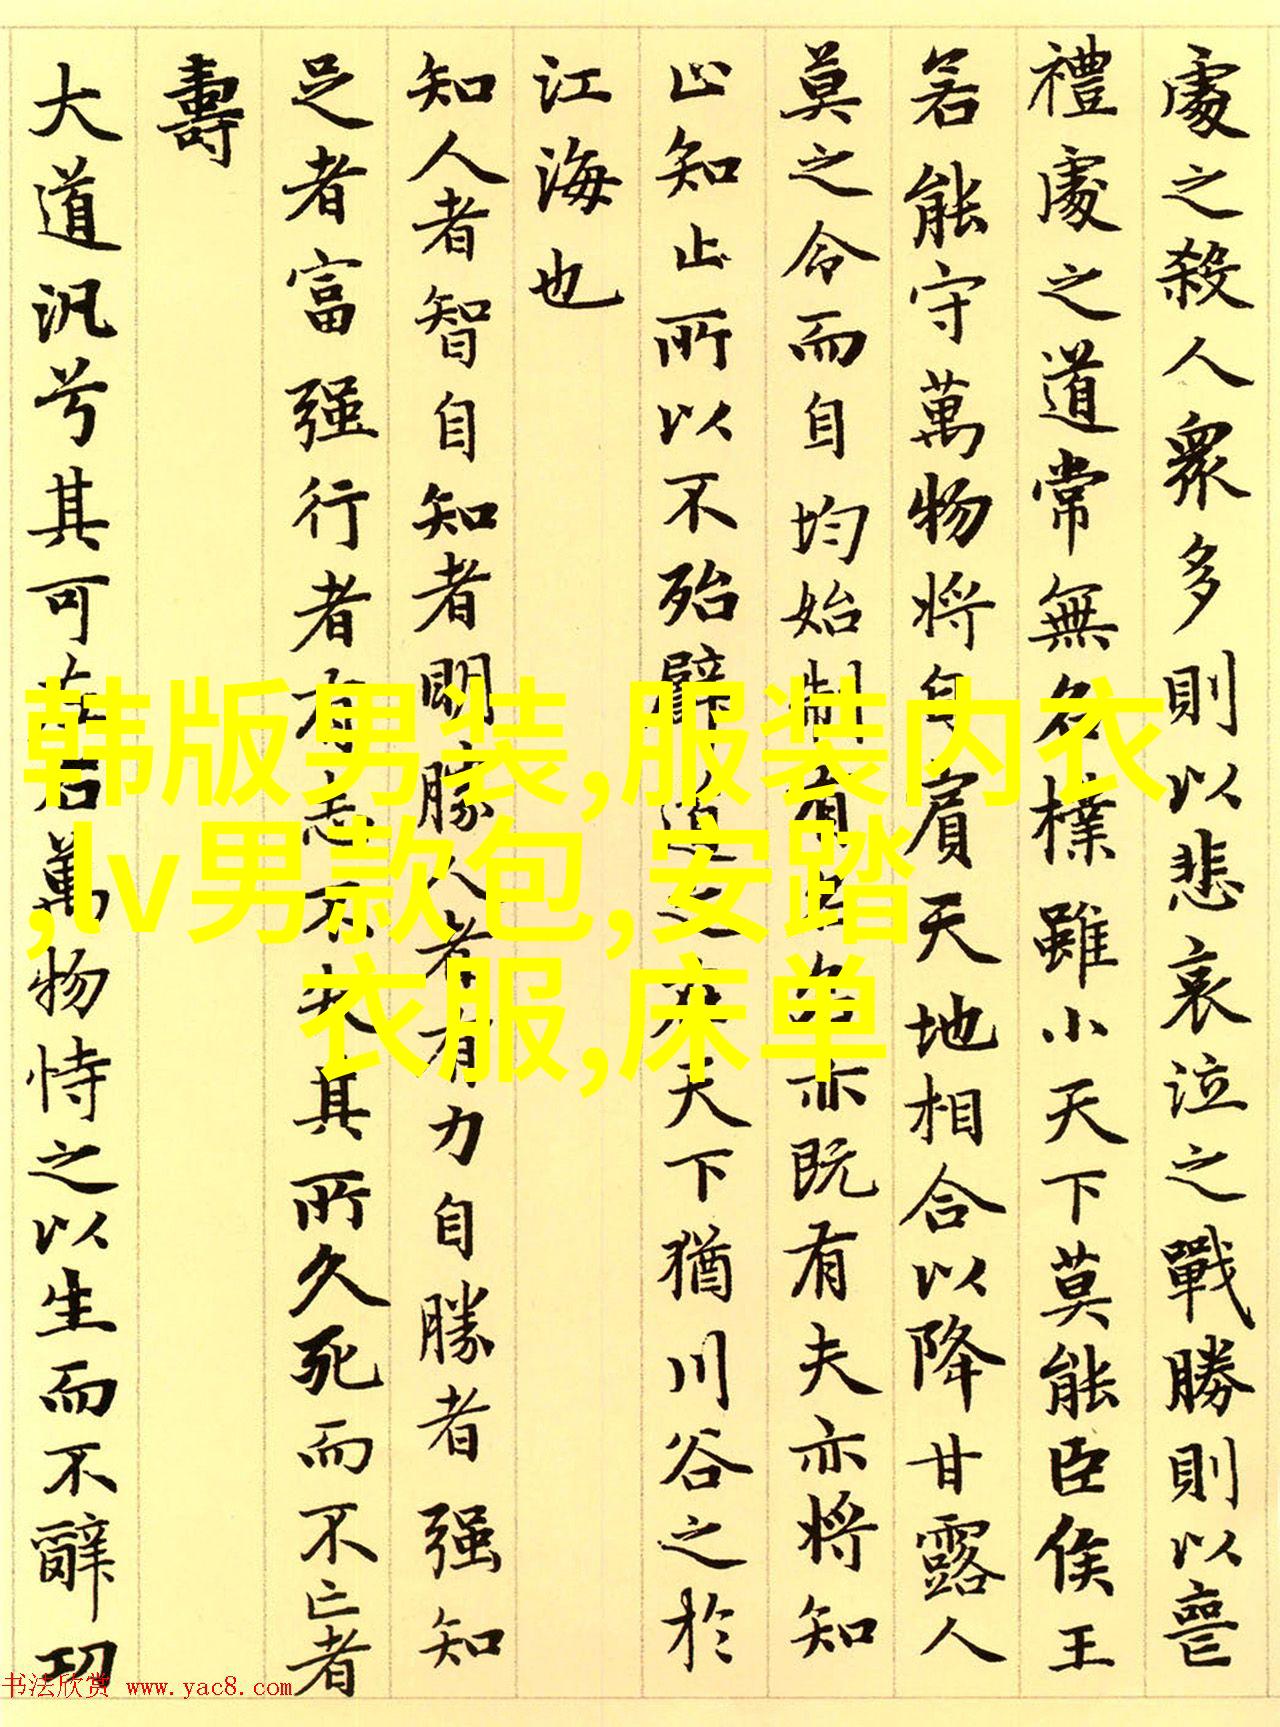 處之殺人衆多則以悲哀泣之戰勝則以喪
禮處之道常無名樸雖小天下莫能臣侯王
若能守萬物將自賓天地相合以降甘露人
莫之令而自均始制有名亦既有夫亦將知
止知止所以不殆譬道之在天下猶川谷之於
江海也
知人者智自知者明勝人者有力自勝者强知
足者富强行者有志不失其所久死而不亡者
壽
大道汎兮其可左右萬物恃之以生而不辭功
韩版男装,服装内衣
,lv男款包,安踏
衣服,床单
书法欣赏 www.yac8.com